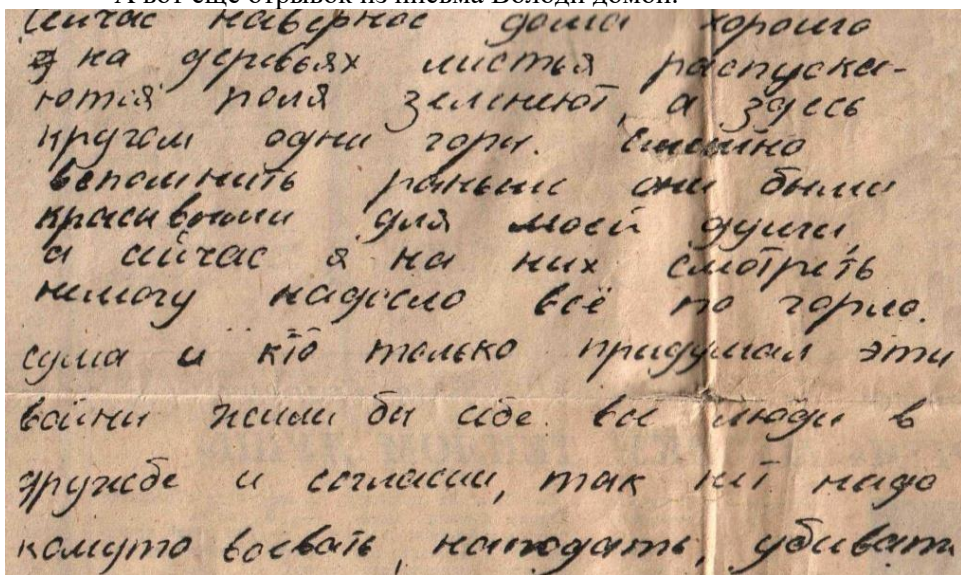 А вот еще отрывок из письма Володи домой:
Сейчас наверное дома хорошо
на деревьях листья распуска-
ются поля зеленеют, а здесь
кругом одни горы. Смешно
вспомнить раньше они были
красивыми для моей души,
а сейчас я на них смотреть
немогу надоело всё по горло.
и кто только придумал эти
войны жили бы себе все люди в
дружбе и согласии, так нет надо
комуто воевать, нападать, убивать